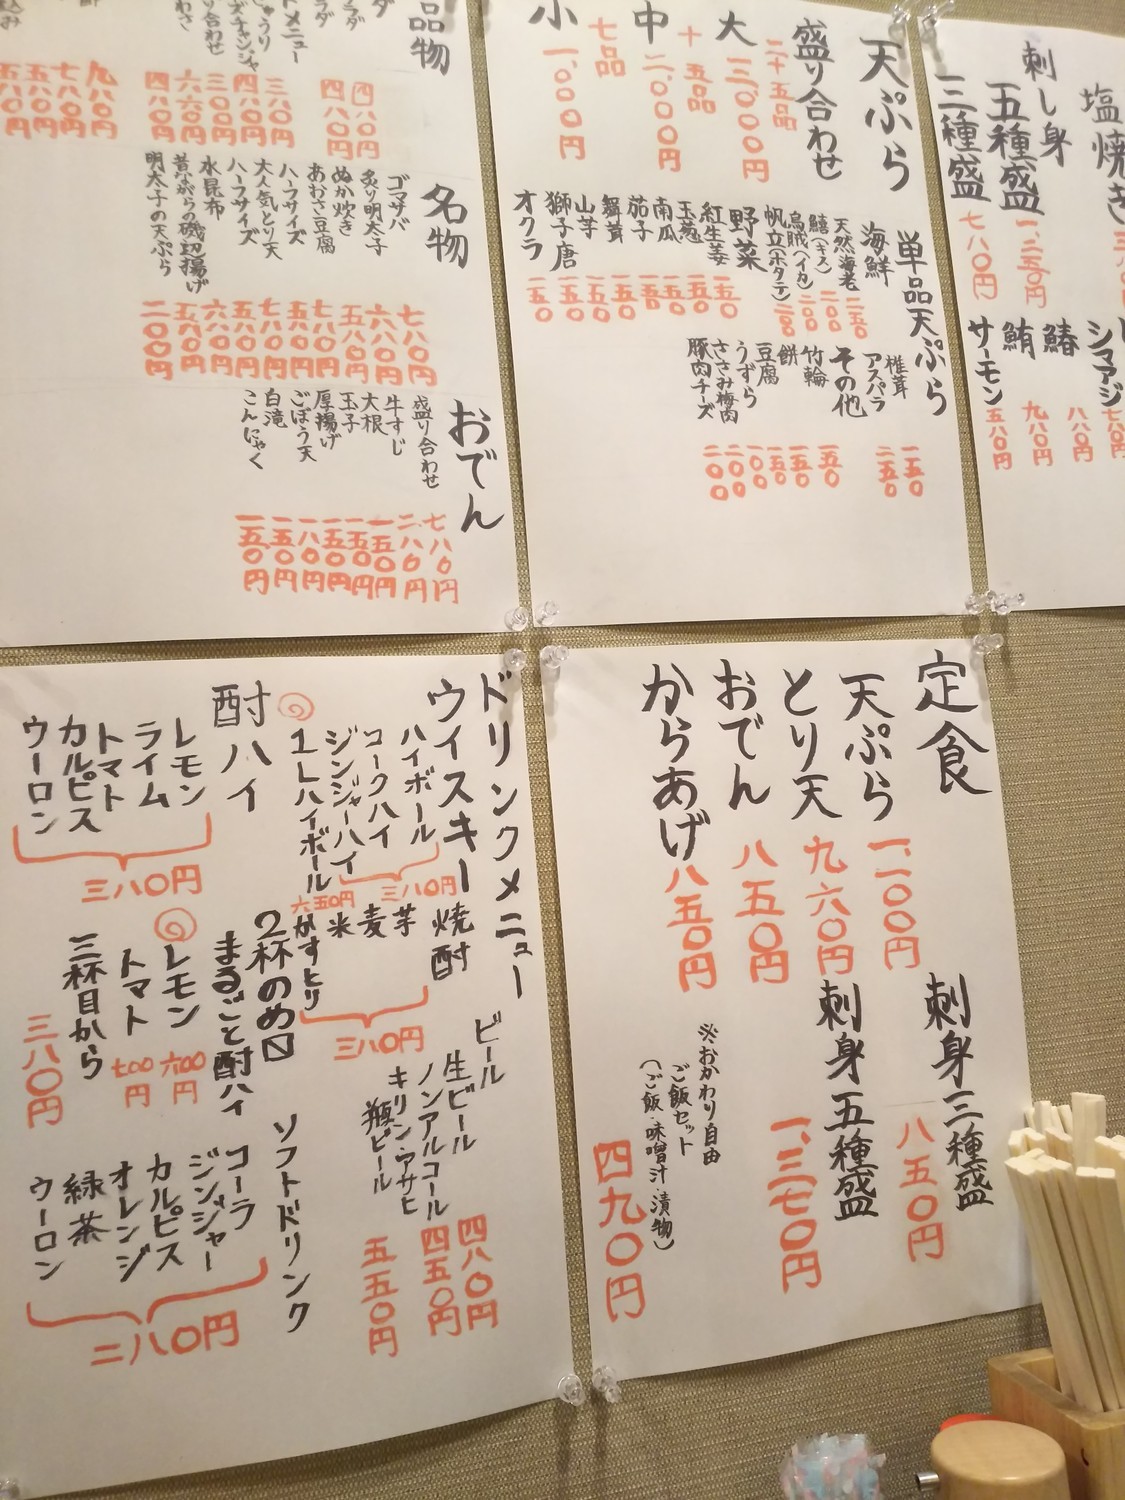 塩焼き
刺し身
五種盛
一、二五〇円
三種盛
七八〇円
シマアジ
七八〇円
鰆
八八〇円
鮪
九八〇円
サーモン
五八〇円
天ぷら
盛り合わせ
二十五品
大
三、〇〇〇円
十五品
中
二、〇〇〇円
七品
小
一、〇〇〇円
単品天ぷら
海鮮
天然海老
二五〇
鱚(キス)
二〇〇
烏賊(イカ)
二〇〇
帆立(ホタテ)
野菜
紅生姜
一五〇
玉葱
一五〇
南瓜
一五〇
茄子
一五〇
舞茸
一五〇
山芋
一五〇
獅子唐
一五〇
オクラ
一五〇
椎茸
一五〇
アスパラ
二五〇
その他
竹輪
一五〇
餅
一五〇
豆腐
一五〇
うずら
一〇〇
ささみ梅肉
二〇〇
豚肉チーズ
二〇〇
品物
名物
ゴマサバ
七八〇円
炙り明太子
六八〇円
ぬか炊き
五八〇円
あおさ豆腐
七八〇円
ハーフサイズ
五八〇円
大人気とり天
七八〇円
ハーフサイズ
五八〇円
水昆布
六八〇円
昔ながらの磯辺揚げ
五八〇円
明太子の天ぷら
二〇〇円
おでん
盛り合わせ
七八〇円
牛すじ
二八〇円
大根
一五〇円
玉子
一五〇円
厚揚げ
一五〇円
ごぼう天
一八〇円
白滝
一五〇円
こんにゃく
一五〇円
定食
天ぷら
一、一〇〇円
とり天
九六〇円
おでん
八五〇円
からあげ
八五〇円
刺身三種盛
八五〇円
刺身五種盛
一、三七〇円
※おかわり自由
ご飯セット
(ご飯・味噌汁・漬物)
四九〇円
ドリンクメニュー
ウイスキー
ハイボール
コークハイ
ジンジャーハイ
三八〇円
1Lハイボール
六五〇円
焼酎
芋
麦
米
かすとり
三八〇円
ビール
生ビール
四八〇円
ノンアルコール
四五〇円
キリン・アサヒ
瓶ビール
五五〇円
酎ハイ
レモン
ライム
トマト
カルピス
ウーロン
三八〇円
2杯のめ〼
まるごと酎ハイ
レモン
六〇〇円
トマト
七〇〇円
三杯目から
三八〇円
ソフトドリンク
コーラ
ジンジャー
カルピス
オレンジ
緑茶
ウーロン
二八〇円